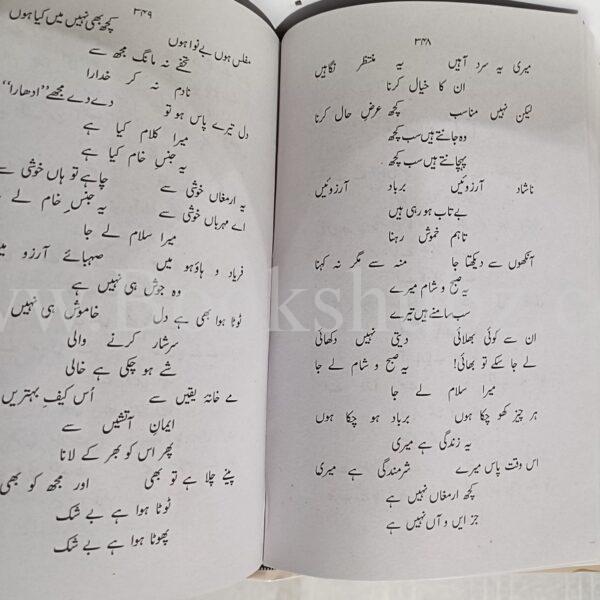 ۳۴۸
میری یہ سرد آہیں یہ منتظر نگاہیں
ان کا خیال کرنا
لیکن نہیں مناسب کچھ عرضِ حال کرنا
وہ جانتے ہیں سب کچھ
پہچانتے ہیں سب کچھ
ناشاد آرزوئیں برباد آرزوئیں
بے تاب ہو رہی ہیں
تاہم خموش رہنا
آنکھوں سے دیکھتا جا منہ سے مگر نہ کہنا
یہ صبح و شام میرے
سب سامنے ہیں تیرے
ان سے کوئی بھلائی دیتی نہیں دکھائی
لے جا سکے تو بھائی! یہ صبح و شام لے جا
میرا سلام لے جا
ہر چیز کھو چکا ہوں برباد ہو چکا ہوں
یہ زندگی ہے میری
اس وقت پاس میرے شرمندگی ہے میری
کچھ ارمغاں نہیں ہے
جز ایں و آں نہیں ہے
۳۴۹
مفلس ہوں بے نوا ہوں کچھ بھی نہیں میں کیا ہوں
تحفے نہ مانگ مجھ سے
نادم نہ کر خدارا
دل تیرے پاس ہو تو دے دے مجھے ”ادھارا“
میرا کلام کیا ہے
یہ جنسِ خام کیا ہے
یہ ارمغاں خوشی سے چاہے تو ہاں خوشی سے
اے مہرباں خوشی سے یہ جنسِ خام لے
میرا سلام لے جا
فریاد و ہاؤ ہو میں صہبائے آرزو
وہ جوش ہی نہیں ہے
ٹوٹا ہوا بھی ہے دل خاموش ہی نہیں
سرشار کرنے والی
شے ہو چکی ہے خالی
مے خانۂ یقیں سے اُس کیفِ بہتریں
ایمانِ آتشیں سے
پھر اس کو بھر کے لانا
پینے چلا ہے تو بھی اور مجھ کو بھی
ٹوٹا ہوا ہے بے شک
پھوٹا ہوا ہے بے شک